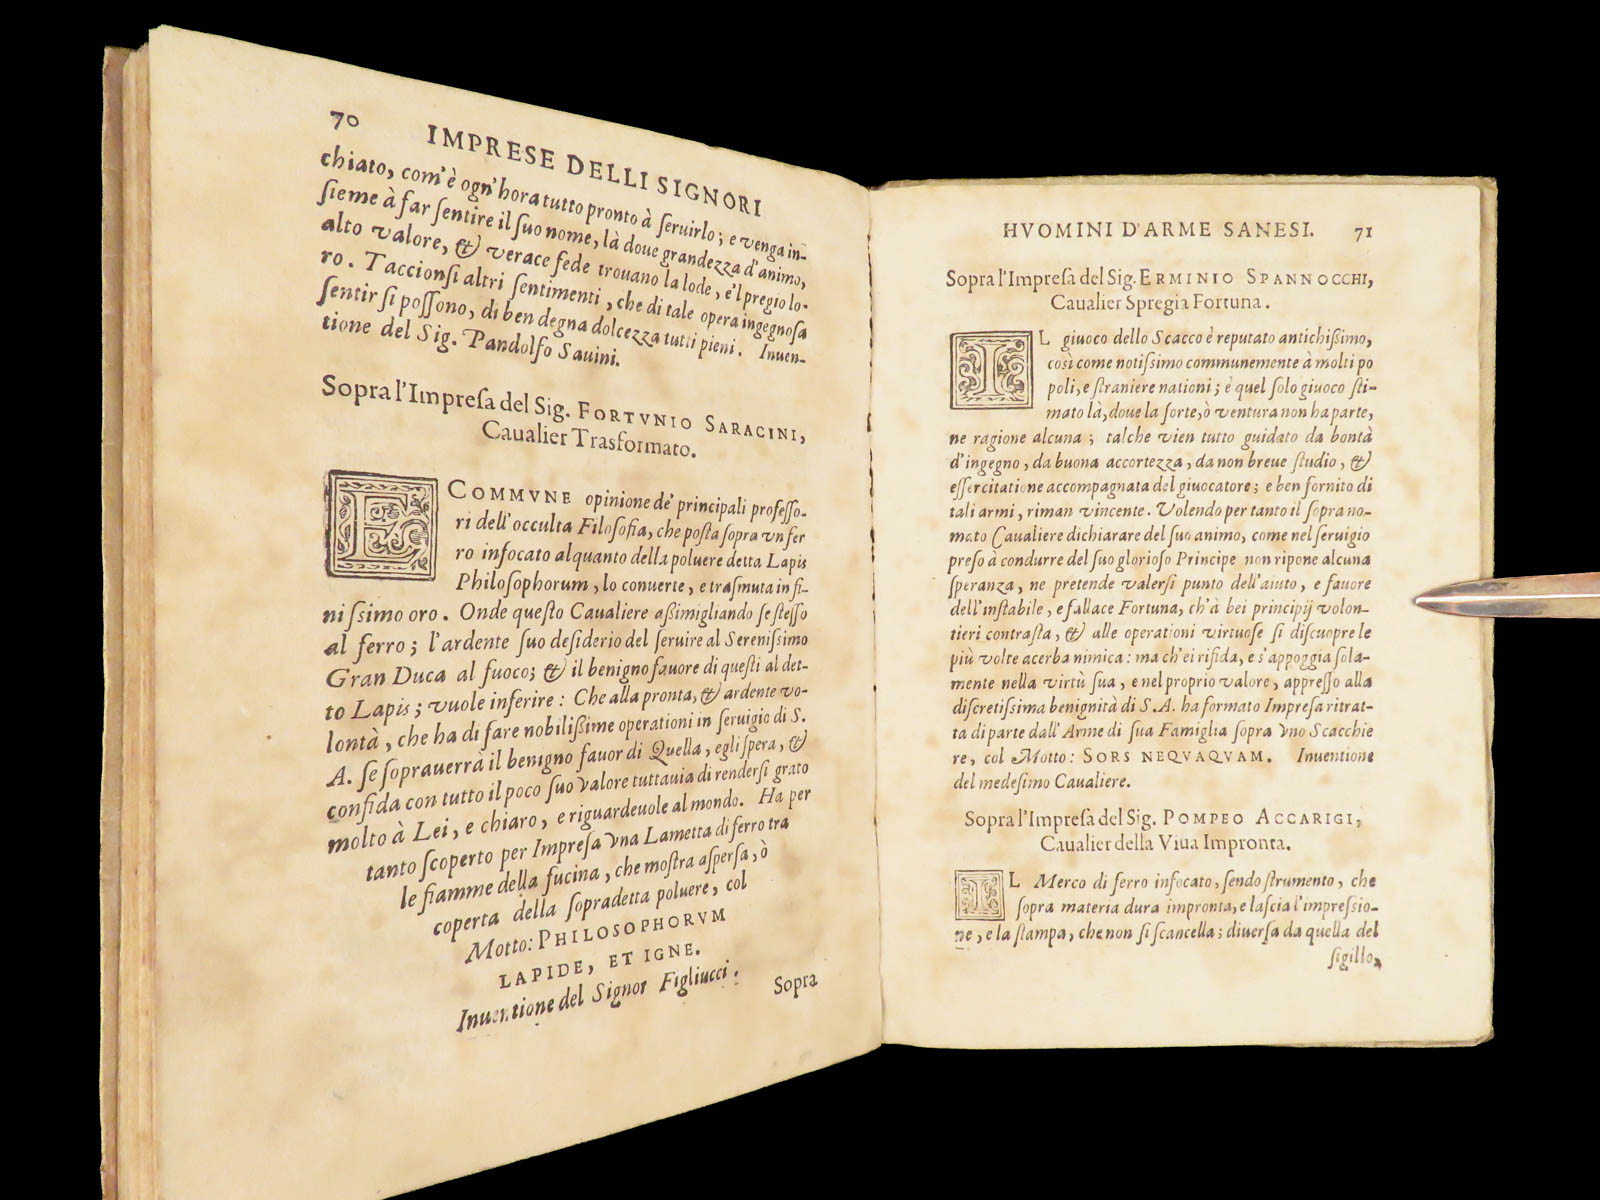 70
IMPRESE DELLI SIGNORI
chiato, com'è ogn'hora tutto pronto à seruirlo; e venga in-
sieme à far sentire il suo nome, là doue grandezza d'animo,
alto valore, & verace fede trouano la lode, e'l pregio lo-
ro. Taccionsi altri sentimenti, che di tale opera ingegnosa
sentir si possono, di ben degna dolcezza tutti pieni. Inuen-
tione del Sig. Pandolfo Sauini.
Sopra l'Impresa del Sig. FORTVNIO SARACINI,
Caualier Trasformato.
E COMMVNE opinione de' principali professo-
ri dell'occulta Filosofia, che posta sopra vn fer
ro infocato alquanto della poluere detta Lapis
Philosophorum, lo conuerte, e trasmuta in fi-
nissimo oro. Onde questo Caualiere assimigliando se stesso
al ferro; l'ardente suo desiderio del seruire al Serenissimo
Gran Duca al fuoco; & il benigno fauore di questi al det-
to Lapis; vuole inferire: Che alla pronta, & ardente vo-
lontà, che ha di fare nobilissime operationi in seruigio di S.
A. se soprauerrà il benigno fauor di Quella, egli spera, &
confida con tutto il poco suo valore tuttauia di rendersi grato
molto à Lei, e chiaro, e riguardeuole al mondo. Ha per
tanto scoperto per Impresa vna Lametta di ferro tra
le fiamme della fucina, che mostra aspersa, ò
coperta della sopradetta poluere, col
Motto: PHILOSOPHORVM
LAPIDE, ET IGNE.
Inuentione del Signor Figliucci.
Sopra
HVOMINI D'ARME SANESI. 71
Sopra l'Impresa del Sig. ERMINIO SPANNOCCHI,
Caualier Spregia Fortuna.
IL giuoco dello Scacco è reputato antichissimo,
così come notissimo communemente à molti po
poli, e straniere nationi; è quel solo giuoco sti-
mato là, doue la sorte, ò ventura non ha parte,
ne ragione alcuna; talche vien tutto guidato da bontà
d'ingegno, da buona accortezza, da non breue studio, &
essercitatione accompagnata del giuocatore; e ben fornito di
tali armi, riman vincente. Volendo per tanto il sopra no-
mato Caualiere dichiarare del suo animo, come nel seruigio
preso à condurre del suo glorioso Principe non ripone alcuna
speranza, ne pretende valersi punto dell'aiuto, e fauore
dell'instabile, e fallace Fortuna, ch'à bei principij volon-
tieri contrasta, & alle operationi virtuose si discuopre le
più volte acerba nimica: ma ch'ei rifida, e s'appoggia sola-
mente nella virtù sua, e nel proprio valore, appresso alla
discretissima benignità di S. A. ha formato Impresa ritrat-
ta di parte dall'Arme di sua Famiglia sopra vno Scacchie
re, col Motto: SORS NEQVAQVAM. Inuentione
del medesimo Caualiere.
Sopra l'Impresa del Sig. POMPEO ACCARIGI,
Caualier della Viua Impronta.
IL Merco di ferro infocato, sendo strumento, che
sopra materia dura impronta, e lascia l'impressio-
ne, e la stampa, che non si scancella; diuersa da quella del
sigillo,